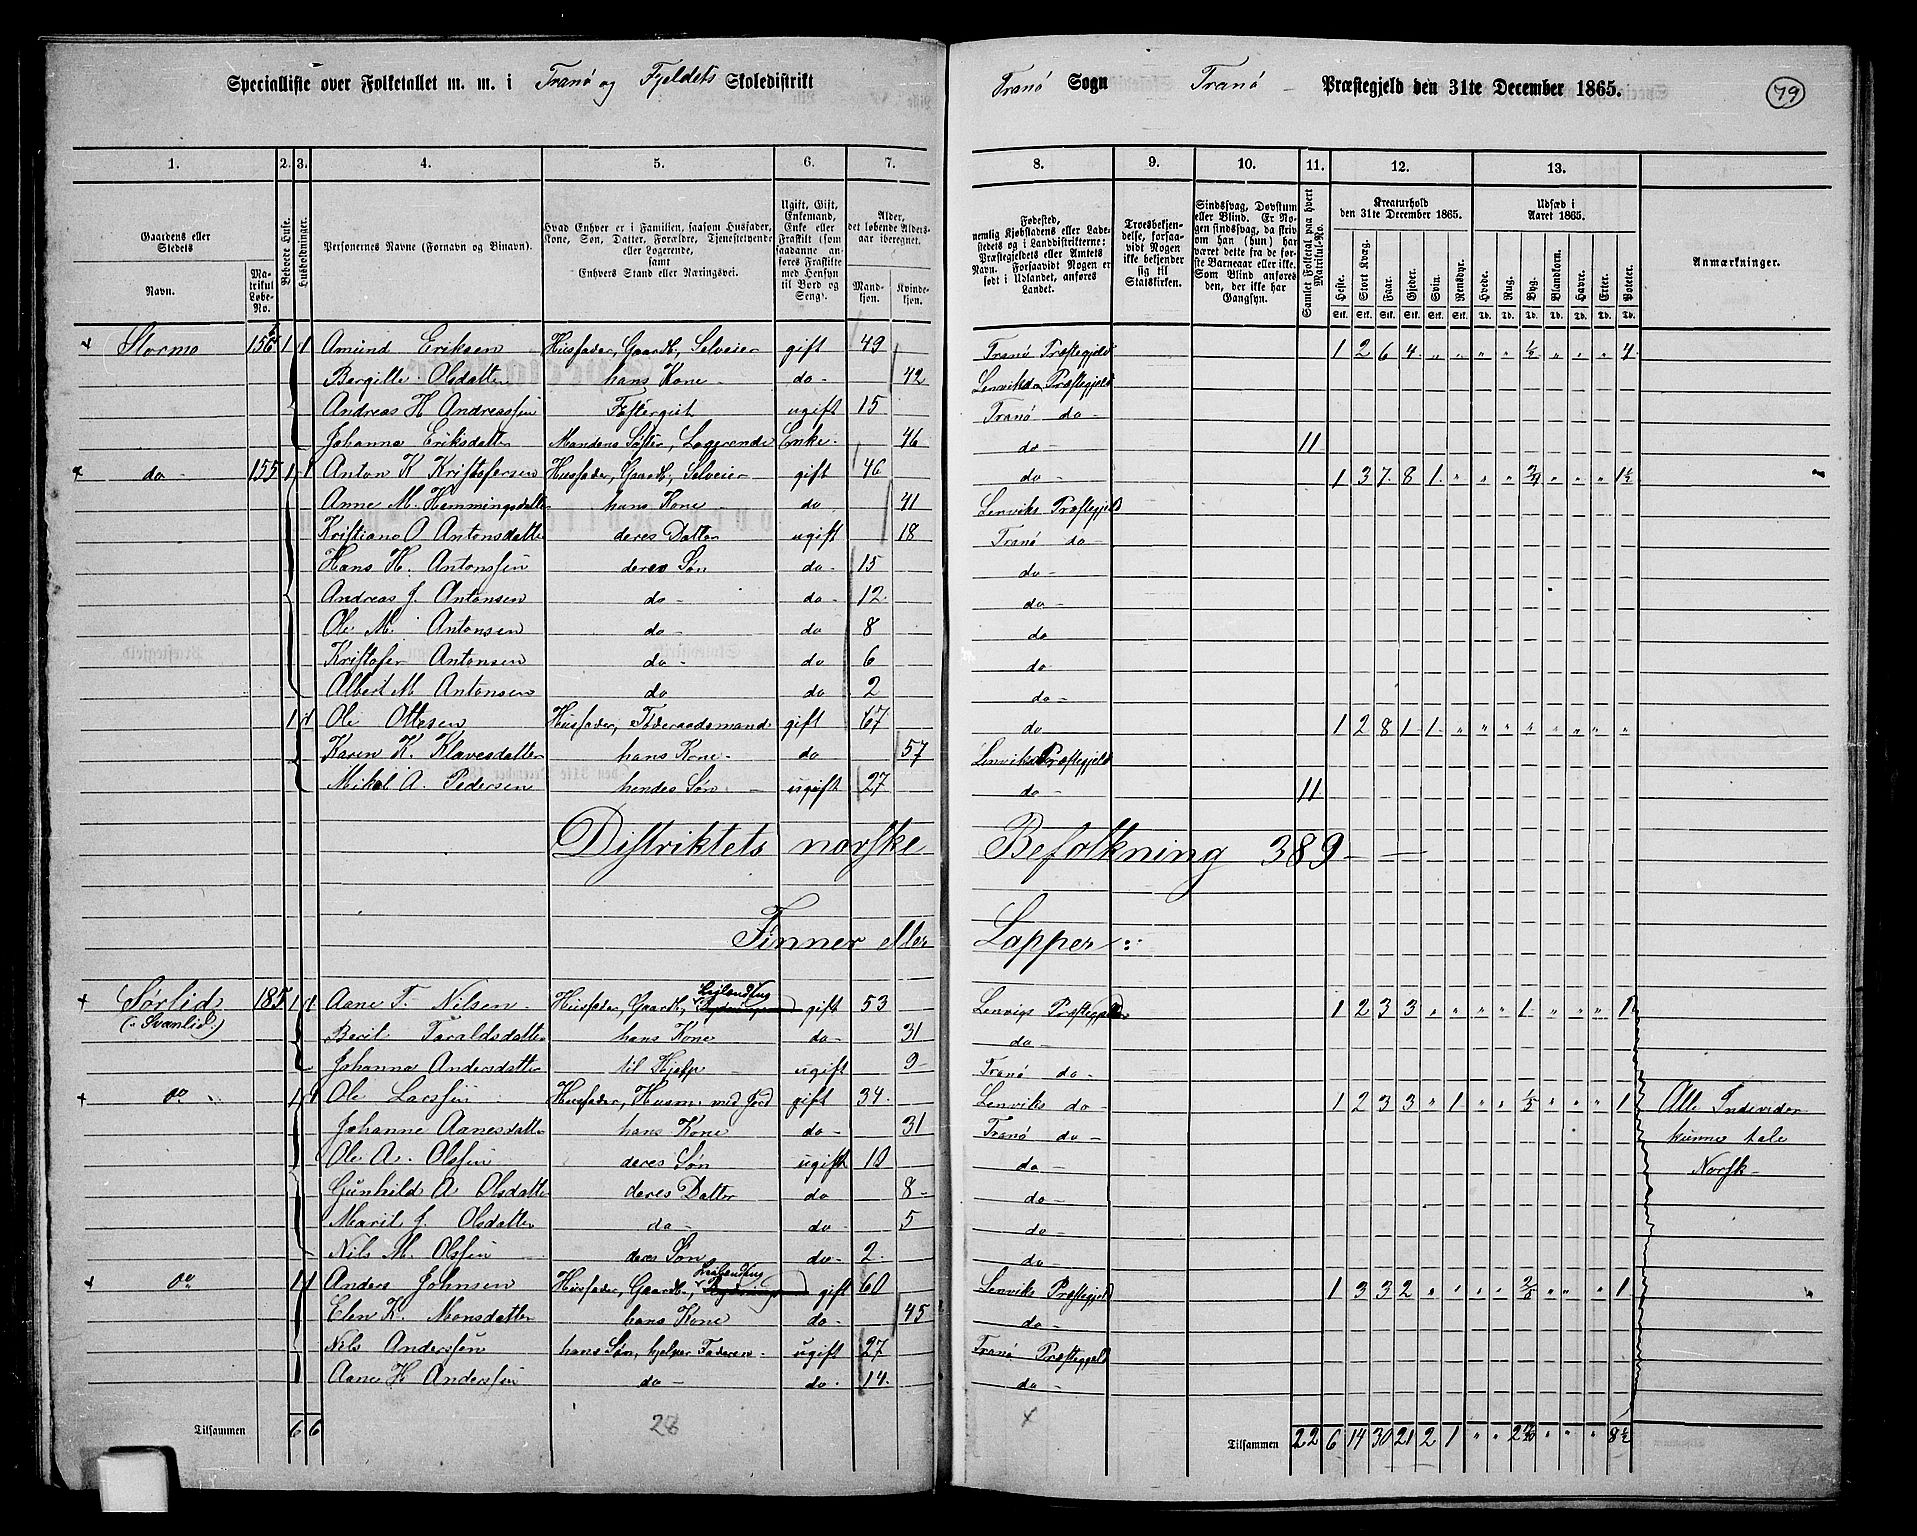 Specialliste over Folketallet m. m. i Tranö og Fjeldets Skoledistrikt
Tranö Sogn Tranö Præstegjeld den 31te December 1865. 79
1. 2. 3. 4. 5. 6. 7. 8. 9. 10. 11. 12. 13.
Gaardens eller Stedets
Navn.
Matrikul Løbe-No.
Beboede Huse.
Husholdninger.
Personernes Navne (Fornavn og Binavn).
Hvad Enhver er i Familien, saasom Husfader, Kone, Søn, Datter, Forældre, Tjenestetyende eller Logerende, samt Enhvers Stand eller Næringsvei.
Ugift, Gift, Enkemand, Enke eller Fraskilt (som saadanne anføres Fraskilte med Hensyn til Bord og Seng).
Alder, det løbende Aldersaar iberegnet.
Mandkjøn. Kvindekjøn.
Fødested, nemlig Kjøbstadens eller Ladestedets og i Landdistrikterne: Præstegjeldets eller Amtets Navn. Forsaavidt Nogen er født i Udlandet, anføres Landet.
Troesbekjendelse, forsaavidt Nogen ikke bekjender sig til Statskirken.
Sindssvag, Døvstum eller Blind. Er Nogen sindssvag, da skrives om han (hun) har været dette fra de første Barneaar eller ikke. Som Blind anføres den, der ikke har Gangsyn.
Samlet Folketal paa hvert Matrikul-No.
Kreaturhold den 31te December 1865.
Heste. Stort Kvæg. Faar. Gjeder. Svin. Rensdyr.
Udsæd i Aaret 1865.
Hvede. Rug. Byg. Blandkorn. Havre. Erter. Poteter.
Anmærkninger.
Stormo 156 1 1 Amund Eriksen Husfader, Gaardb, Selveier gift 49 Tranö Præstegjeld 1 2 6 4 " " " " " " " 4
Bergitte Olsdatter hans Kone do 42 Lenviks Præstegjeld
Andreas H Andreassen ugift 15 Tranö do
Johanna Eriksdatter Mandens Søster, Logerende Enke 46 do 11
do 155 1 1 Anton K Kristofersen Husfader, Gaardb, Selveier gift 46 do 1 3 7 8 1 " " " " " " 1½
Anne M. Hemmingsdatter hans Kone do 41 Lenviks Præstegjeld
Kristiane O Antonsdatter deres Datter ugift 18 Tranö do
Hans H. Antonsen deres Søn do 15 do
Andreas J. Antonsen do do 12 do
Ole M. Antonsen do do 8 do
Kristofer Antonsen do do 6 do
Albert M Antonsen do do 2 do
1 1 Ole Ottesen Husfader, Föderaadsmand gift 67 do 1 2 8 1 1 " " " " " " "
Karen K. Klavesdatter hans Kone do 57 Lenviks Præstegjeld
Mikal A. Pedersen hendes Søn ugift 27 do 11
Distriktets norske Befolkning 389
Finner eller Lapper:
Sørlid 185 1 1 Aane T. Nilsen Husfader, Gaardb, Leilænding gift 53 Lenvigs Præstegjeld 1 2 3 3 " " " " 1 " " " 1
(: Svanlid :)
Berit Taraldsdatter hans Kone do 31 do
Johanna Andersdatter til Hjelp ugift 9 Tranö do
do 1 1 Ole Larssen Husfader, Husm. med Jord gift 34 Lenviks do 1 2 3 3 " 1 " " ⅕ " " " 1 Alle Individer
Johanne Aanesdatter hans Kone do 31 Tranö do kunne tale
Ole A. Olssen deres Søn ugift 10 do Norsk
Gunhild A Olsdatter deres Datter do 8 do
Marit J. Olsdatter do do 5 do
Nils M. Olssen deres Søn do 2 do
do 1 1 Anders Johnsen Husfader, Gaardb, Leilænding gift 60 Lenviks Præstegjeld 1 3 3 2 " " " " " " " 1
Elen K. Monsdatter hans Kone do 45 do
Nils Anderssen hans Søn, hjelper Faderen ugift 27 Tranö Præstegjeld
Aane H Anderssen do do 14 do
Tilsammen 6 6 28 Tilsammen 22 6 14 30 21 2 1 " " " " " 8½